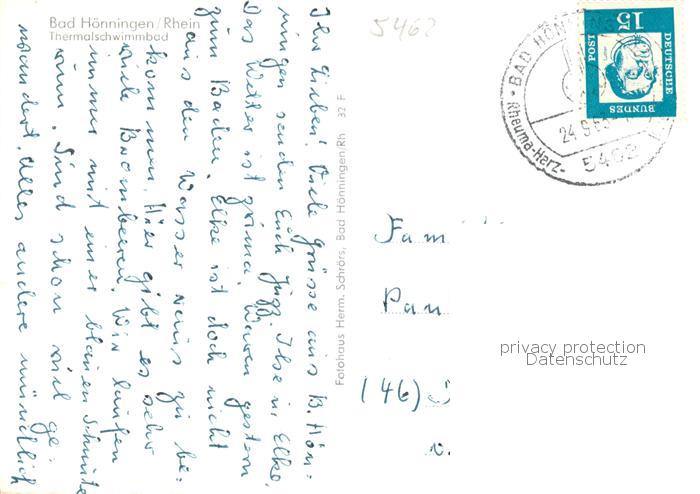 Bad Hönningen/Rhein
Thermalschwimmbad
5462
Ihr Lieben! Viele Grüsse aus B. Hön-
ningen senden Euch Jupp, Ilse u. Elke.
Das Wetter ist prima. Waren gestern
zum Baden. Elke ist doch nicht
aus dem Wasser raus zu be-
kommen. Hier gibt es sehr
viele Brombeeren. Wir laufen
immer mit einer blauen Schnute
rum. Sind schon viel ge-
wandert. Alles andere mündlich
Fotohaus Herm. Schrörs, Bad Hönningen/Rh 32 F
15
DEUTSCHE
BUNDES
POST
BAD HÖNNINGEN
24.9.63
Rheuma-Herz-
5462
Fam
Pan
(46)
privacy protection
Datenschutz